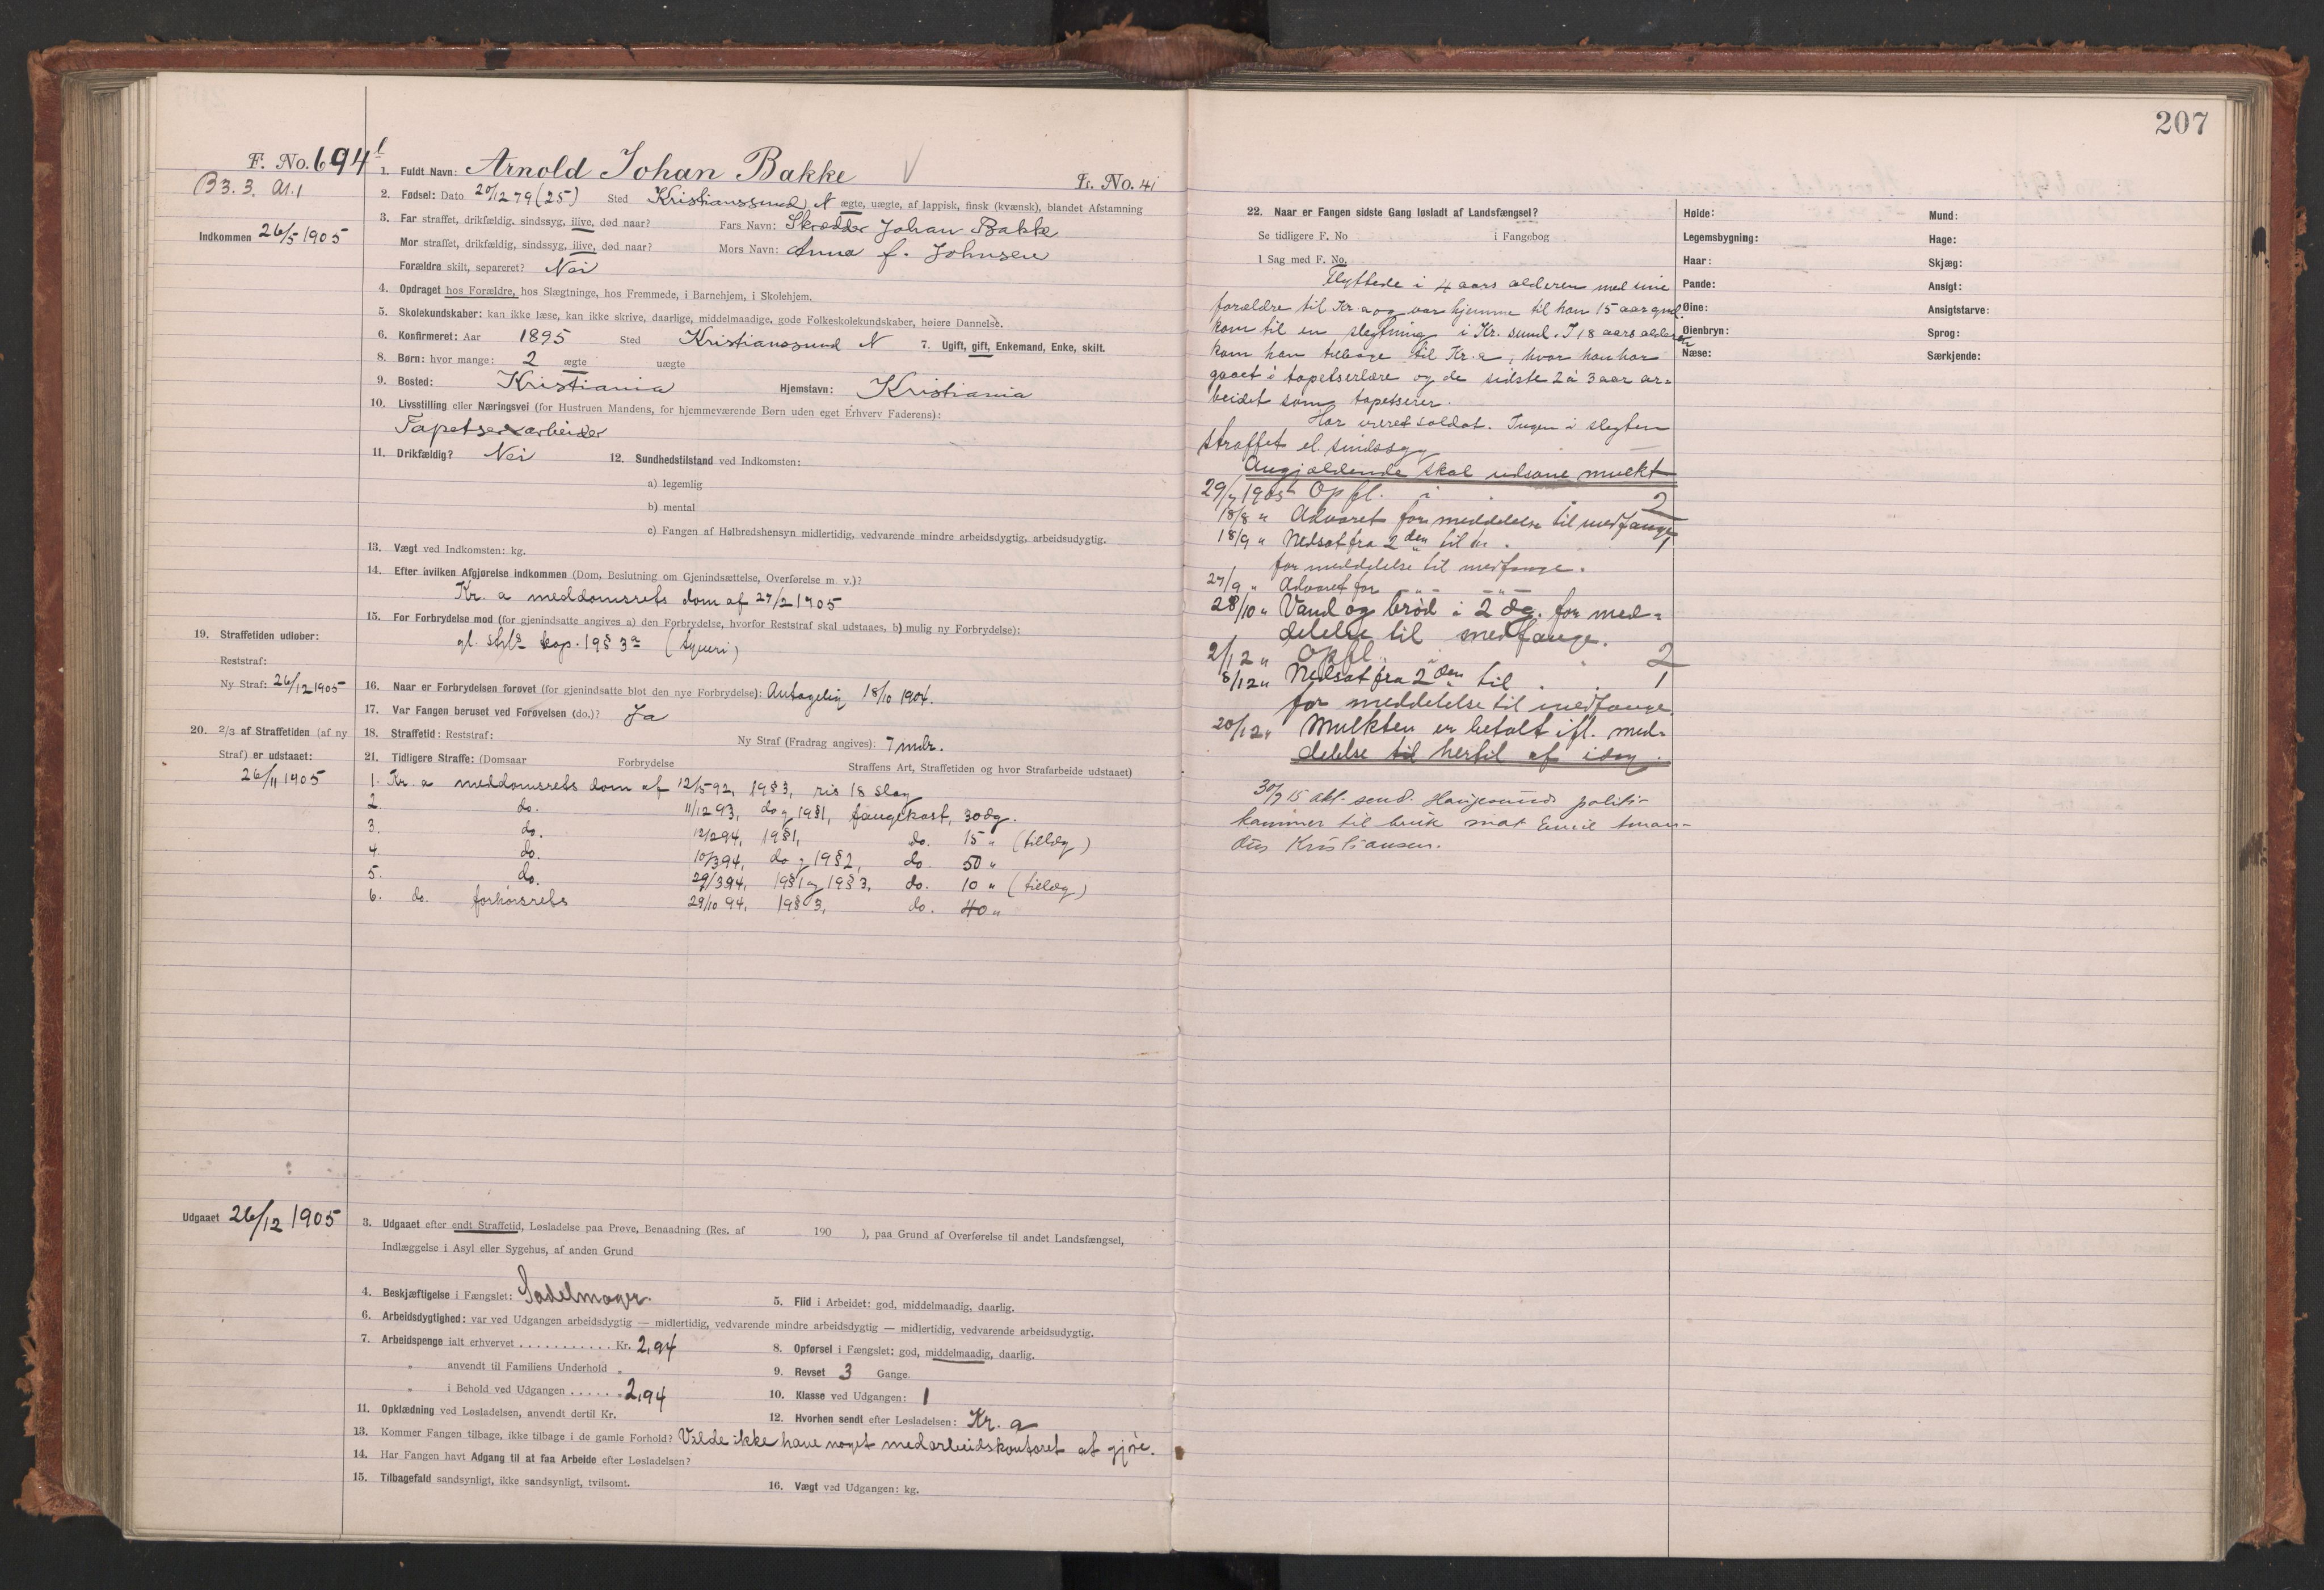 207
F. No. 694
B3. 3. A1. 1
Indkommen 26/5 1905
1. Fuldt Navn: Arnold Johan Bakke
Fr. No. 41
2. Fødsel: Dato 20/12 79 (25) Sted Kristianssund N ægte, uægte, af lappisk, finsk (kvænsk), blandet Afstamning
3. Far straffet, drikfældig, sindssyg, ilive, død naar? Fars Navn: Skrædder Johan Bakke
Mor straffet, drikfældig, sindssyg, ilive, død naar? Mors Navn: Anna f. Johnsen
Forældre skilt, separeret? Nei
4. Opdraget hos Forældre, hos Slægtninge, hos Fremmede, i Barnehjem, i Skolehjem.
5. Skolekundskaber: kan ikke læse, kan ikke skrive, daarlige, middelmaadige, gode Folkeskolekundskaber, høiere Dannelse.
6. Konfirmeret: Aar 1895 Sted Kristianssund N 7. Ugift, gift, Enkemand, Enke, skilt.
8. Børn: hvor mange: 2 ægte uægte
9. Bosted: Kristiania Hjemstavn: Kristiania
10. Livsstilling eller Næringsvei (for Hustruen Mandens, for hjemmeværende Børn uden eget Erhverv Faderens):
Tapetserarbeider
11. Drikfældig? Nei 12. Sundhedstilstand ved Indkomsten:
a) legemlig
b) mental
c) Fangen af Helbredshensyn midlertidig, vedvarende mindre arbeidsdygtig, arbeidsudygtig.
13. Vægt ved Indkomsten: kg.
14. Efter hvilken Afgjørelse indkommen (Dom, Beslutning om Gjenindsættelse, Overførelse m. v.)?
Kr. a meddomsrets dom af 27/2 1905
15. For Forbrydelse mod (for gjenindsatte angives a) den Forbrydelse, hvorfor Reststraf skal udstaaes, b) mulig ny Forbrydelse):
gl. strl. kap. 19 § 3 (tyveri)
19. Straffetiden udløber:
Reststraf:
Ny Straf: 26/12 1905
16. Naar er Forbrydelsen forøvet (for gjenindsatte blot den nye Forbrydelse): Antagelig 18/10 1904.
17. Var Fangen beruset ved Forøvelsen (do.)? Ja
20. 2/3 af Straffetiden (af ny
Straf) er udstaaet:
26/11 1905
18. Straffetid: Reststraf: Ny Straf (Fradrag angives): 7 mdr.
21. Tidligere Straffe: (Domsaar Forbrydelse Straffens Art, Straffetiden og hvor Strafarbeide udstaaet)
1. Kr. a meddomsrets dom af 12/5 92, 19 § 3, ris 18 slag
2. do. 11/12 93, do og 19 § 1, fangekost, 30 dg.
3. do. 12/2 94, 19 § 1, do. 15 " (tillæg)
4. do. 10/3 94, do og 19 § 2, do. 50 "
5. do. 29/3 94, 19 § 1 og 19 § 3, do. 10 " (tillæg)
6. do. forhørsrets 29/10 94, 19 § 3, do. 40 "
Udgaaet 26/12 1905
3. Udgaaet efter endt Straffetid, Løsladelse paa Prøve, Benaadning (Res. af 190 ), paa Grund af Overførelse til andet Landsfængsel,
Indlæggelse i Asyl eller Sygehus, af anden Grund
4. Beskjæftigelse i Fængslet: Sadelmager. 5. Flid i Arbeidet: god, middelmaadig, daarlig.
6. Arbeidsdygtighed: var ved Udgangen arbeidsdygtig — midlertidig, vedvarende mindre arbeidsdygtig — midlertidig, vedvarende arbeidsudygtig.
7. Arbeidspenge ialt erhvervet ........... Kr. 2,94 8. Opførsel i Fængslet: god, middelmaadig, daarlig.
" anvendt til Familiens Underhold " 9. Revset 3 Gange.
" i Behold ved Udgangen ...... " 2,94 10. Klasse ved Udgangen: 1
11. Opklædning ved Løsladelsen, anvendt dertil Kr. 12. Hvorhen sendt efter Løsladelsen: Kr. a
13. Kommer Fangen tilbage, ikke tilbage i de gamle Forhold? Vilde ikke have noget med arbeidskontoret at gjøre.
14. Har Fangen havt Adgang til at faa Arbeide efter Løsladelsen?
15. Tilbagefald sandsynligt, ikke sandsynligt, tvilsomt. 16. Vægt ved Udgangen: kg.
22. Naar er Fangen sidste Gang løsladt af Landsfængsel?
Se tidligere F. No i Fangebog
I Sag med F. No.
Flyttede i 4 aars alderen med sine
forældre til Kr. a og var hjemme til han 15 aar gml.
kom til en slegtning i Kr. sund. I 18 aars alderen
kom han tilbage til Kr. a, hvor han har
gaaet i tapetserlære og de sidste 2 à 3 aar ar=
beidet som tapetserer.
Har været soldat. Ingen i slegten
straffet el. sindssyg
Angjældende skal udsone mulkt
29/7 1905 Opfl. i 2
18/8 " Advaret for meddelelse til medfange
18/9 " Nedsat fra 2den til 1
for meddelelse til medfange.
27/9 " Advaret for — " —
28/10 " Vand og brød i 2 dg. for med=
delelse til medfange.
2/12 " Opfl. 2
8/12 " Nedsat fra 2den til 1
for meddelelse til medfange.
20/12 " Mulkten er betalt ifl. med=
delelse til hertil af idag.
30/7 15 akt. send. Haugesunds politi-
kammer til bruk mot Emil
Kristiansen.
Høide:
Legemsbygning:
Haar:
Pande:
Øine:
Øienbryn:
Næse:
Mund:
Hage:
Skjæg:
Ansigt:
Ansigtstarve:
Sprog:
Særkjende: